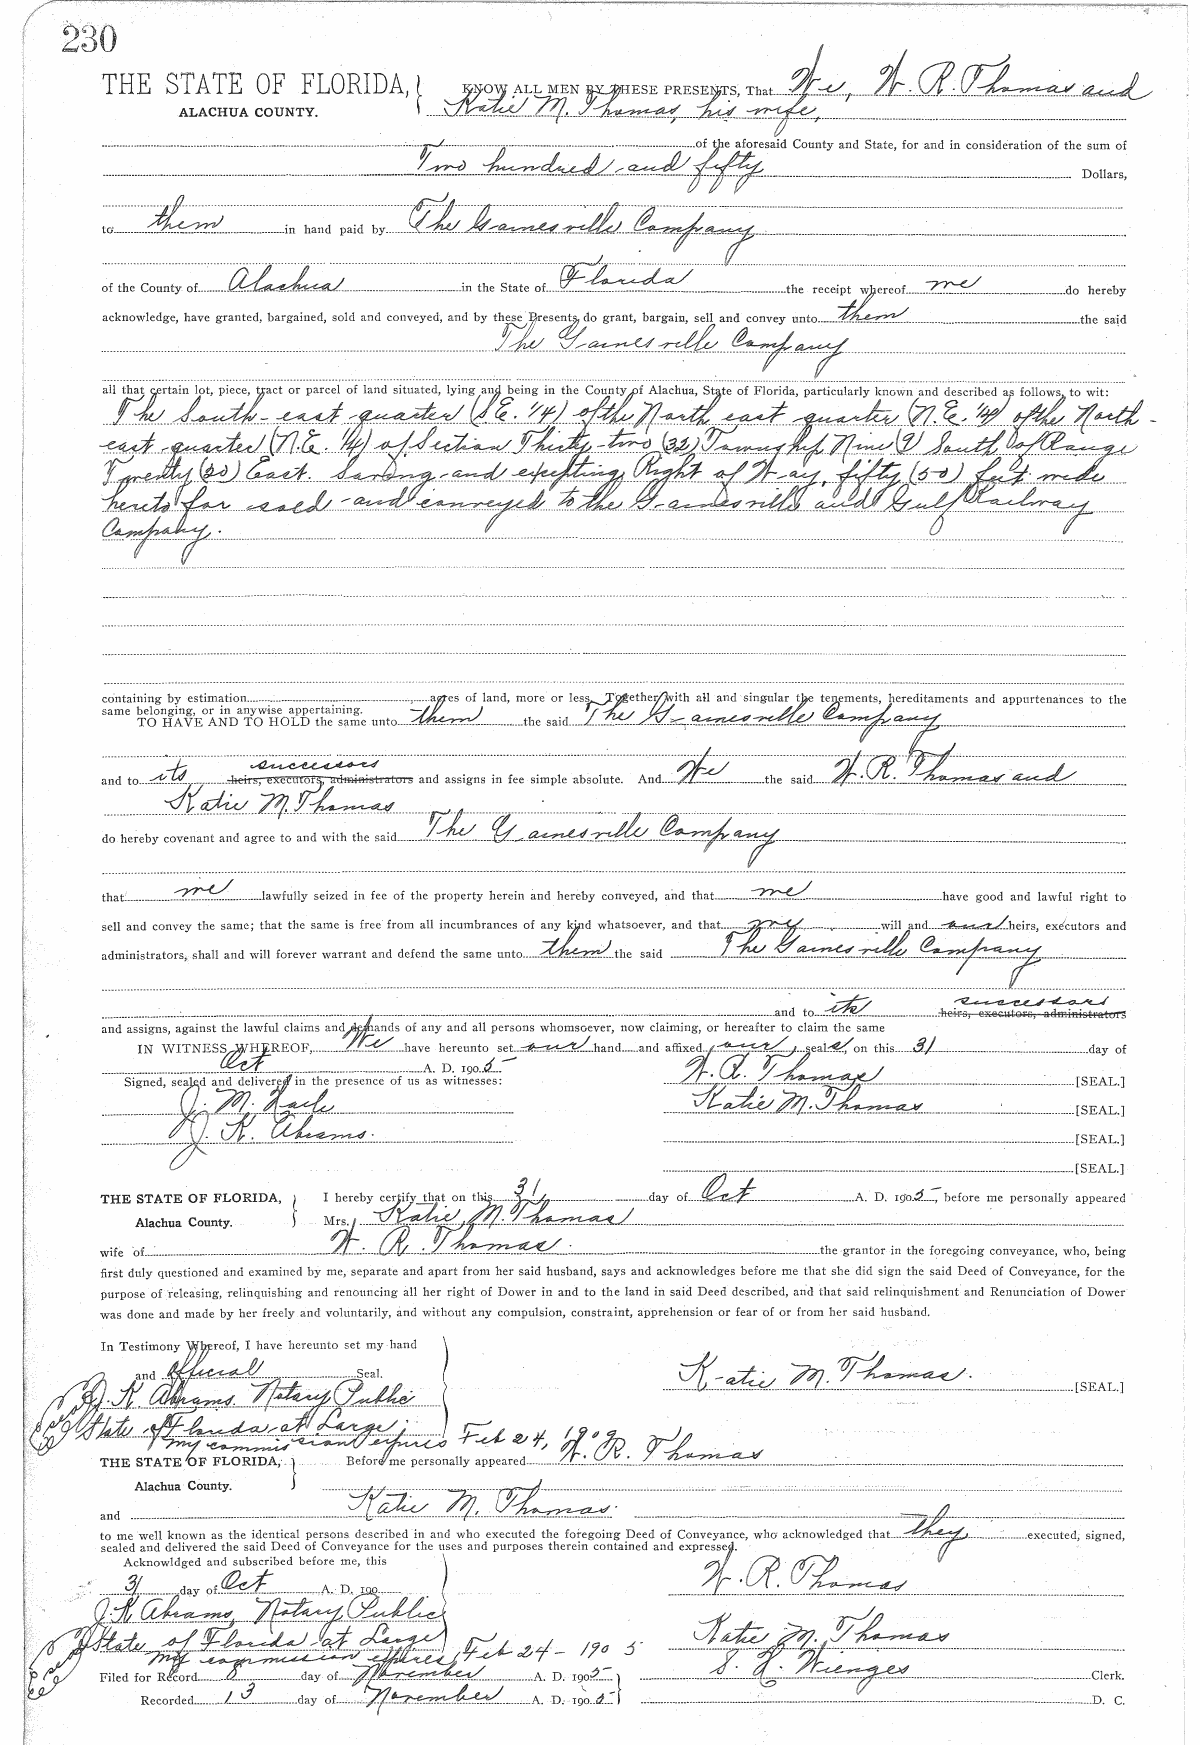 230
THE STATE OF FLORIDA, KNOW ALL MEN BY THESE PRESENTS, That We, W. R. Thomas and
ALACHUA COUNTY. Katie M. Thomas, his wife,
of the aforesaid County and State, for and in consideration of the sum of
Two hundred and fifty Dollars,
to them in hand paid by The Gainesville Company
of the County of Alachua in the State of Florida the receipt whereof we do hereby
acknowledge, have granted, bargained, sold and conveyed, and by these Presents, do grant, bargain, sell and convey unto them the said
The Gainesville Company
all that certain lot, piece, tract or parcel of land situated, lying and being in the County of Alachua, State of Florida, particularly known and described as follows, to wit:
The South-east quarter (S.E. 1/4) of the North east quarter (N.E. 1/4) of the North-
east quarter (N.E. 1/4) of Section Thirty-two (32) Township Nine (9) South of Range
Twenty (20) East. Saving and excepting Right of Way, fifty (50) feet wide
hereto for sold and conveyed to the Gainesville and Gulf Railway
Company.
containing by estimation acres of land, more or less. Together with all and singular the tenements, hereditaments and appurtenances to the
same belonging, or in anywise appertaining.
TO HAVE AND TO HOLD the same unto them the said The Gainesville Company
successors
and to its heirs, executors, administrators and assigns in fee simple absolute. And We the said W. R. Thomas and
Katie M. Thomas
do hereby covenant and agree to and with the said The Gainesville Company
that we lawfully seized in fee of the property herein and hereby conveyed, and that we have good and lawful right to
sell and convey the same; that the same is free from all incumbrances of any kind whatsoever, and that we will and our heirs, executors and
administrators, shall and will forever warrant and defend the same unto them the said The Gainesville Company
successors
and to its heirs, executors, administrators
and assigns, against the lawful claims and demands of any and all persons whomsoever, now claiming, or hereafter to claim the same
IN WITNESS WHEREOF, We have hereunto set our hand and affixed our seals, on this 31 day of
Oct A. D. 1905
W. R. Thomas [SEAL.]
Signed, sealed and delivered in the presence of us as witnesses:
J. M. Haile Katie M. Thomas [SEAL.]
J. K. Abrams. [SEAL.]
[SEAL.]
THE STATE OF FLORIDA, I hereby certify that on this 31, day of Oct A. D. 1905, before me personally appeared
Alachua County. Mrs. Katie M. Thomas
wife of W. R. Thomas. the grantor in the foregoing conveyance, who, being
first duly questioned and examined by me, separate and apart from her said husband, says and acknowledges before me that she did sign the said Deed of Conveyance, for the
purpose of releasing, relinquishing and renouncing all her right of Dower in and to the land in said Deed described, and that said relinquishment and Renunciation of Dower
was done and made by her freely and voluntarily, and without any compulsion, constraint, apprehension or fear of or from her said husband.
In Testimony Whereof, I have hereunto set my hand
and official Seal. Katie M. Thomas. [SEAL.]
J. K. Abrams. Notary Public
State of Florida at Large;
My commission expires Feb 24, 1909
THE STATE OF FLORIDA, Before me personally appeared W. R. Thomas
Alachua County.
and Katie M. Thomas.
to me well known as the identical persons described in and who executed the foregoing Deed of Conveyance, who acknowledged that they executed, signed,
sealed and delivered the said Deed of Conveyance for the uses and purposes therein contained and expressed.
Acknowldged and subscribed before me, this
31 day of Oct A. D. 190 W. R. Thomas
J. K. Abrams, Notary Public
State of Florida at Large Katie M. Thomas
My commission expires Feb 24 - 1905
Filed for Record 8 day of November A. D. 1905 S. H. Wienges Clerk.
Recorded 13 day of November A. D. 1905 D. C.